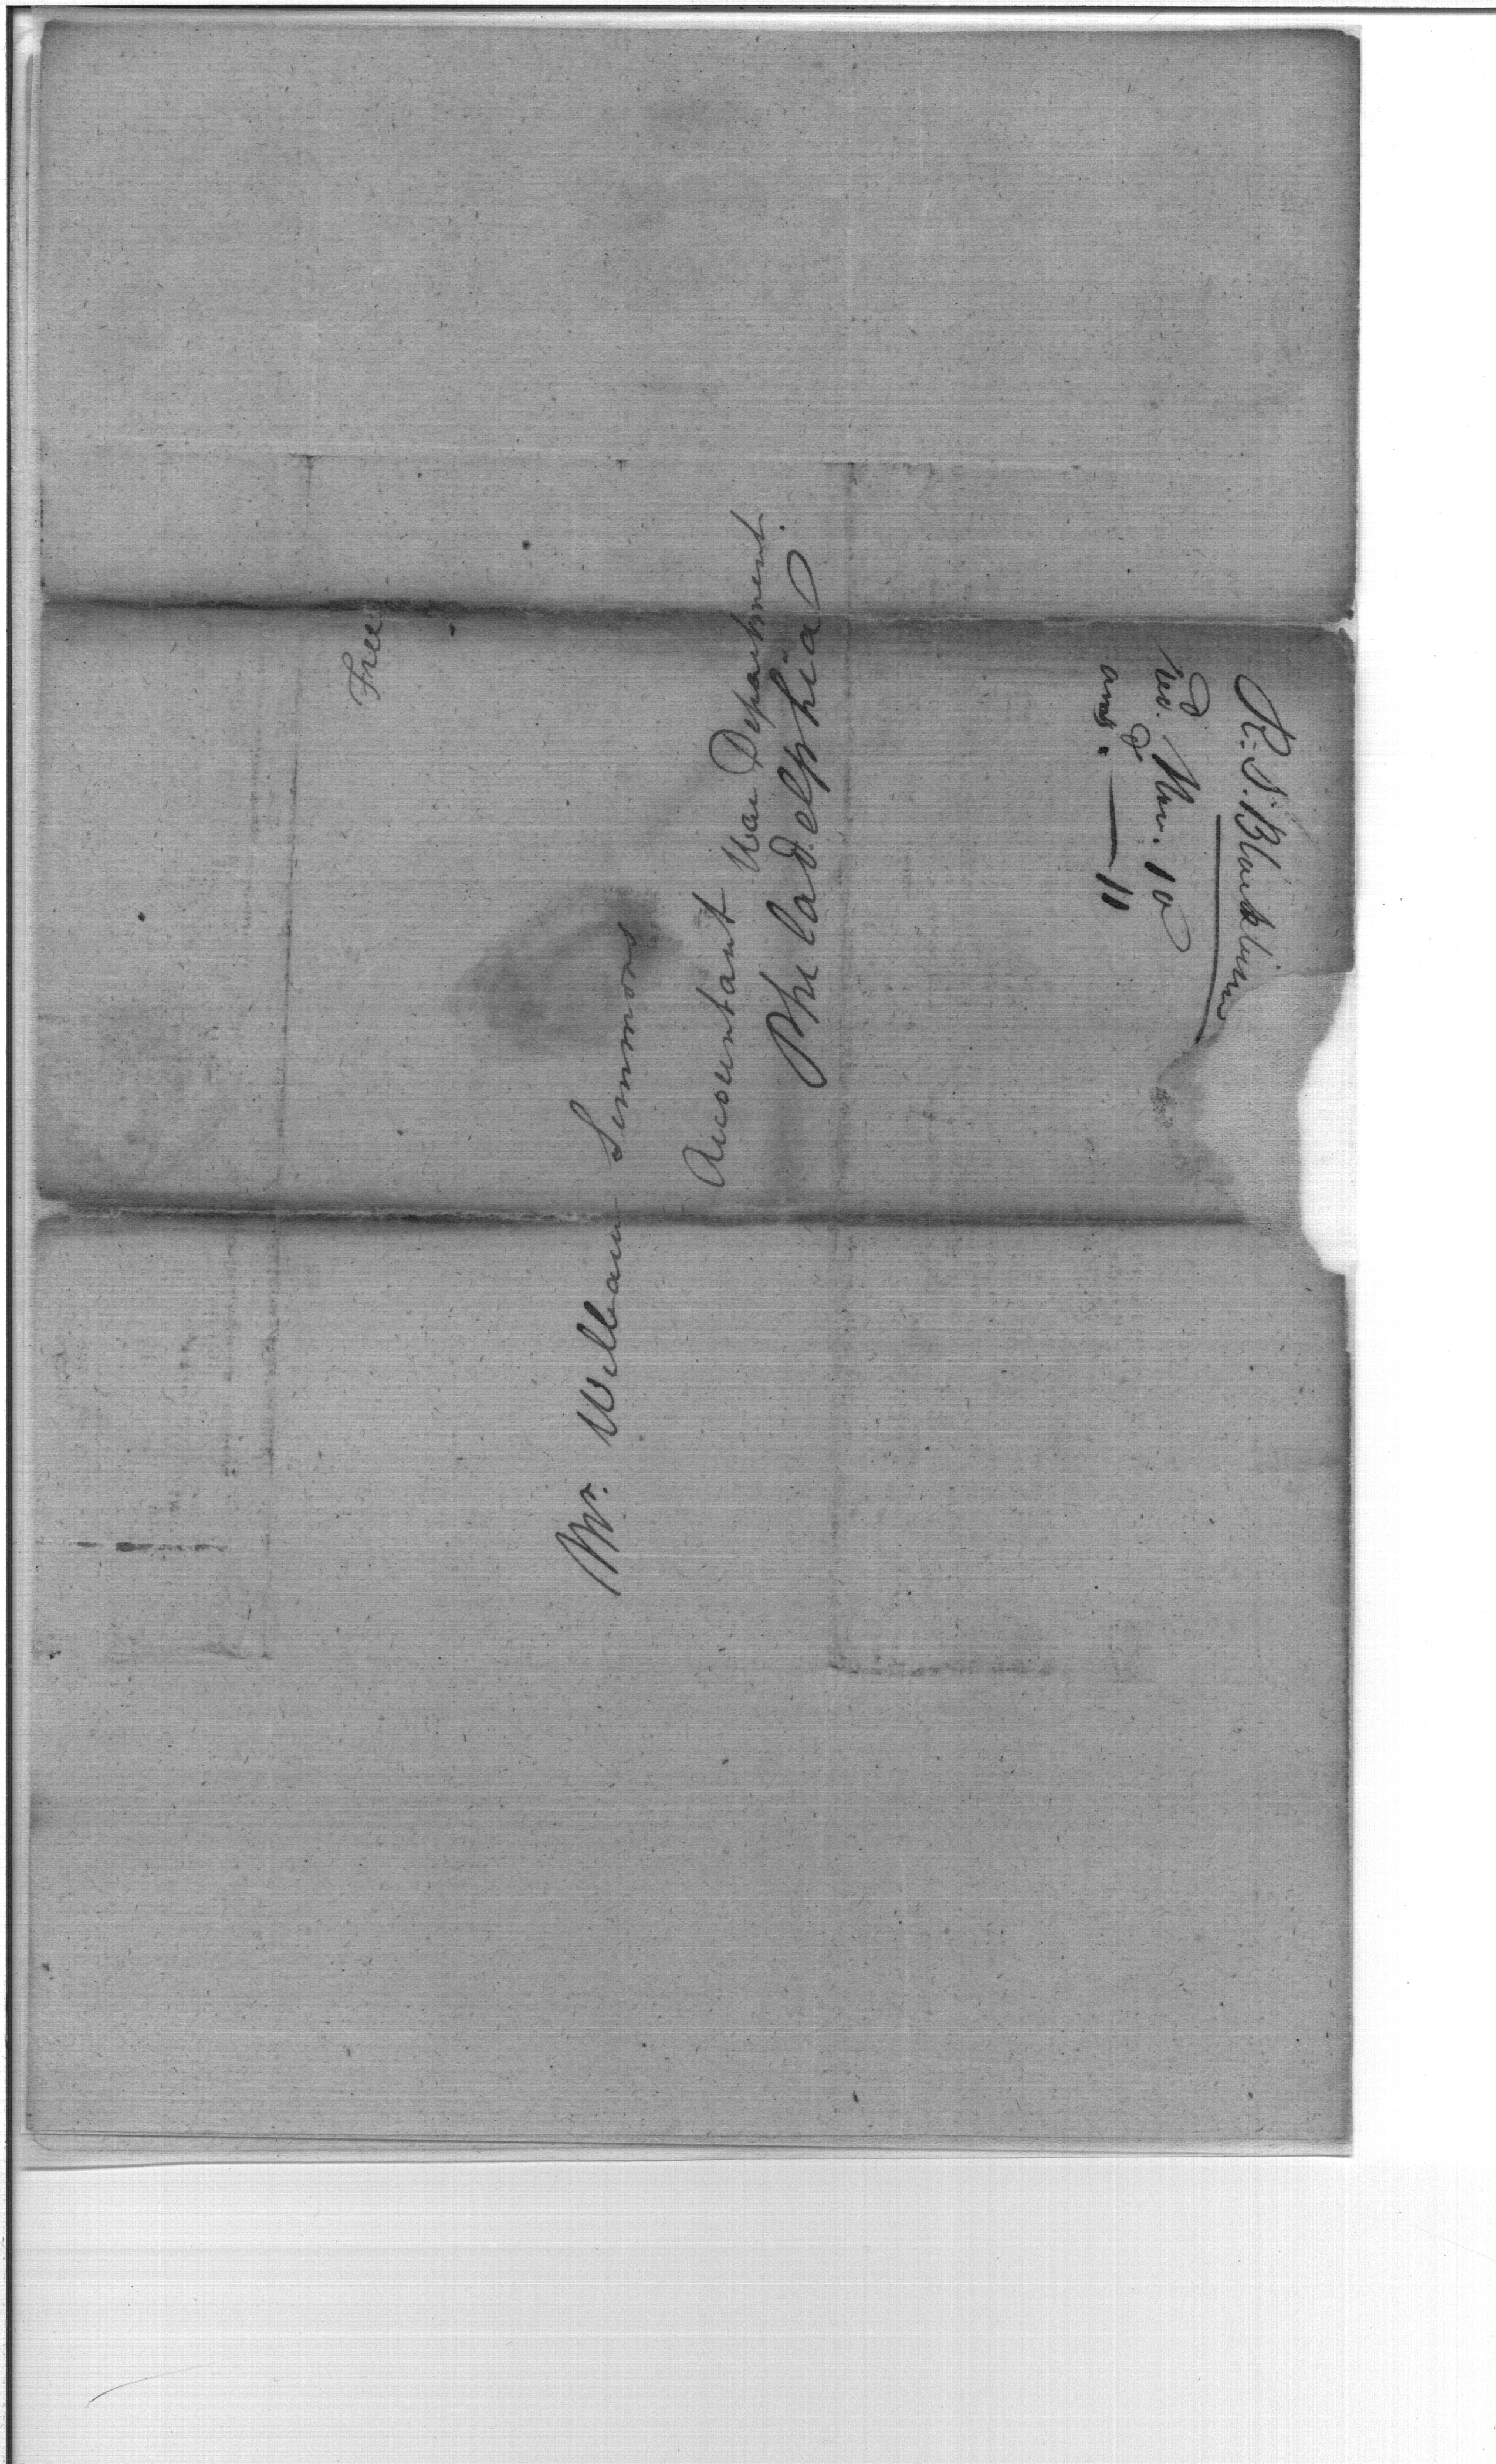 Free
Mr. William Simmons
Accountant War Department.
Philadelphia
R. S. Blackburn
Recd. Nov. 10
ansd. " — 11